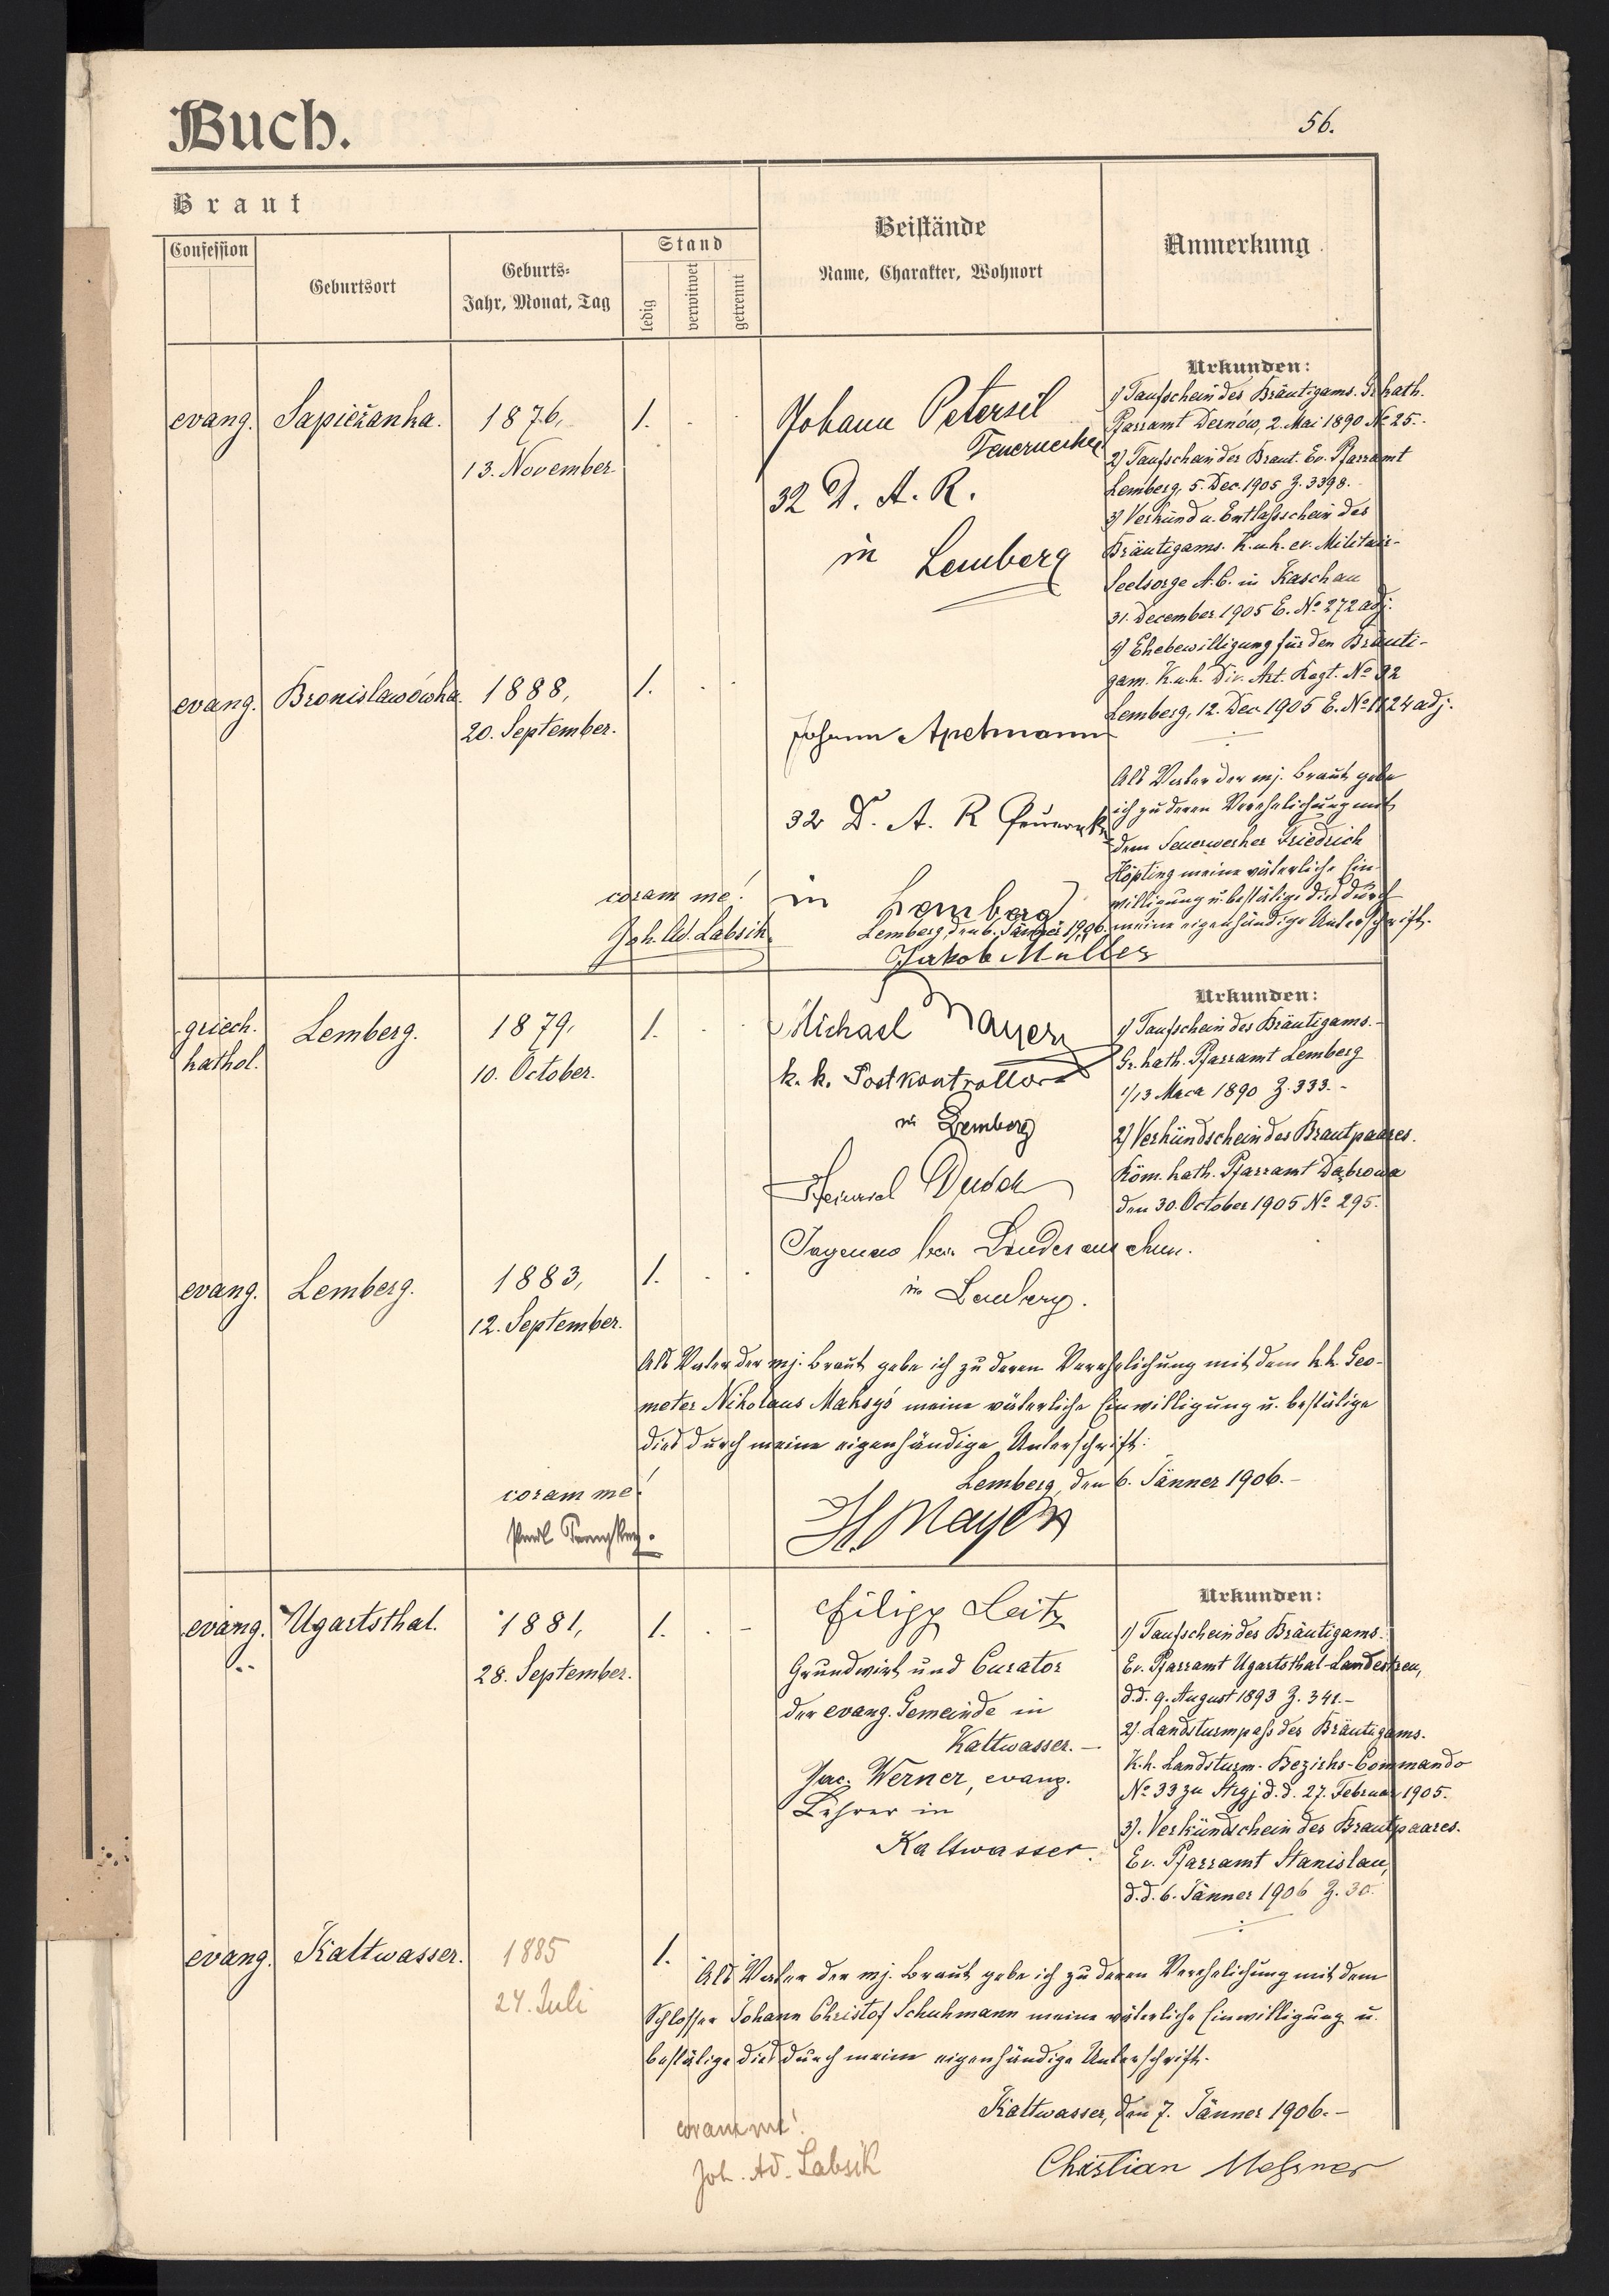 Buch.
56.
Braut
Confession
Geburtsort
Geburts-
Jahr, Monat, Tag
Stand
ledig
verwitwet
getrennt
Beistände
Name, Charakter, Wohnort
Anmerkung.
evang. Sapieżanka. 1876, 1.
13. November.
Johann Petersil
Feuerwerker
32 D. A. R.
in Lemberg
Urkunden:
1) Taufschein des Bräutigams. Gr. kath.
Pfarramt Dernów, 2. Mai 1890 No 25.
2) Taufschein der Braut. Ev. Pfarramt
Lemberg, 5. Dec. 1905 Z. 3398.
3) Verkünd u. Entlaßschein des
Bräutigams. K. u. k. ev. Militair-
Seelsorge A. B. in Kaschau
31. December 1905 E. No 272 adj.
4) Ehebewilligung für den Bräuti-
gam. K. u. k. Div. Art. Regt. No 32
Lemberg, 12. Dec. 1905 E. No 1124 adj.
evang. Bronislawówka. 1888, 1.
20. September.
Johann Apelmann
32 D. A. R
in Lemberg
Als Vater der mj. Braut gebe
ich zu deren Verehelichung mit
dem Feuerwerker Friedrich
Höpting meine väterliche Ein-
willigung u. bestätige dies durch
meine eigenhändige Unterschrift.
coram me!
Joh. Ad. Labsik
Lemberg, den 6. Jänner 1906.
Jakob Muller
griech. kathol. Lemberg. 1879, 1.
10. October.
Michael Mayer
k. k. Postkontrollor
in Lemberg
Heinrich
in Lemberg.
Urkunden:
1) Taufschein des Bräutigams.
Gr. kath. Pfarramt Lemberg
1/13 März 1890 Z. 333.-
2) Verkündschein des Brautpaares.
Röm. kath. Pfarramt Dąbrowa
den 30. October 1905 No 295.
evang. Lemberg. 1883, 1.
12. September.
Als Vater der mj. Braut gebe ich zu deren Verehelichung mit dem k. k. Geo-
meter Nikolaus Maksyś meine väterliche Einwilligung u. bestätige
dies durch meine eigenhändige Unterschrift:
Lemberg, den 6. Jänner 1906.-
coram me!
Mayer
evang. Ugartsthal. 1881, 1. -
28. September.
Filipp Leitz
Grundwirt und Curator
der evang. Gemeinde in
Kaltwasser.-
Jac. Werner, evang.
Lehrer in
Kaltwasser.
Urkunden:
1) Taufschein des Bräutigams.
Ev. Pfarramt Ugartsthal-Landestreu,
d. d. 9. August 1893 Z. 341.-
2). Landsturmpaß des Bräutigams.
K. k. Landsturm-Bezirks-Commando
No 33 zu Stryj d. d. 27. Februar 1905.
3). Verkündschein des Brautpaares.
Ev. Pfarramt Stanislau,
d. d. 6. Jänner 1906 Z. 30.
evang. Kaltwasser. 1885 1.
24. Juli
Als Vater der mj. Braut gebe ich zu deren Verehelichung mit dem
Schlosser Johann Christof Schuhmann meine väterliche Einwilligung u.
bestätige dies durch meine eigenhändige Unterschrift.
Kaltwasser, den 7. Jänner 1906.-
coram me!
Joh. Ad. Labsik
Christian Meßner